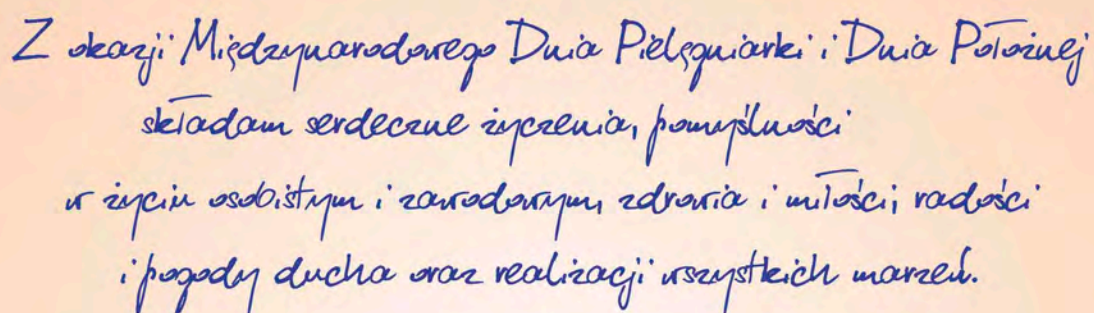 Z okazji Międzynarodowego Dnia Pielęgniarki i Dnia Położnej
składam serdeczne życzenia, pomyślności
w życiu osobistym i zawodowym, zdrowia i miłości, radości
i pogody ducha oraz realizacji wszystkich marzeń.